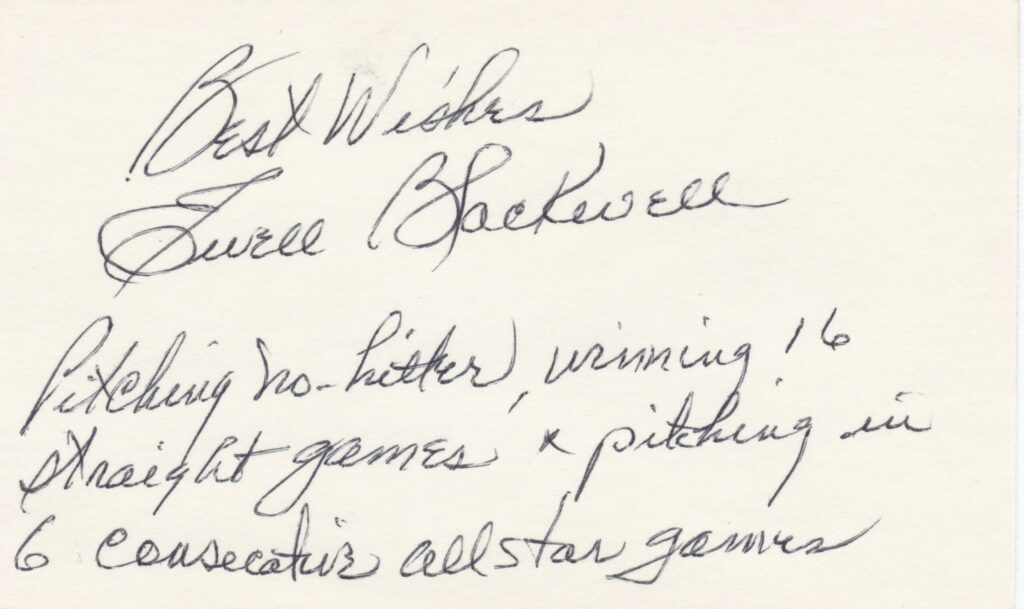 Best Wishes
Ewell Blackwell
Pitching no-hitter, winning 16
straight games & pitching in
6 consecutive all star games